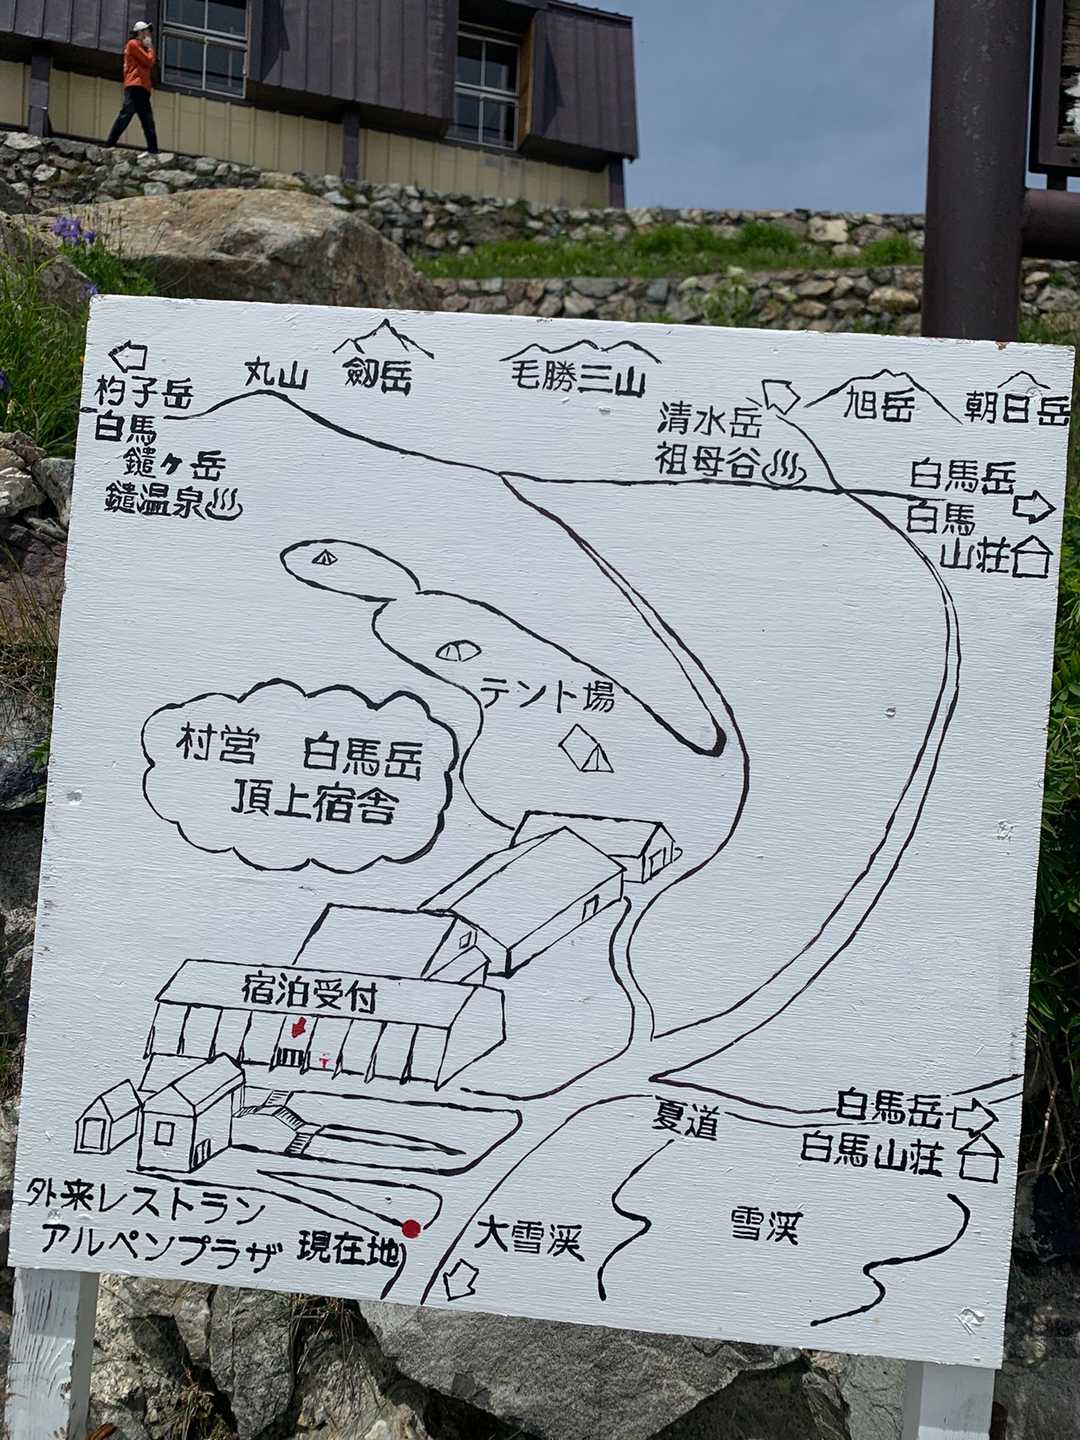 杓子岳
白馬
鑓ヶ岳
鑓温泉
丸山
劔岳
毛勝三山
清水岳
祖母谷
旭岳
朝日岳
白馬岳
白馬
山荘
テント場
村営 白馬岳
頂上宿舎
宿泊受付
〒
夏道
白馬岳
白馬山荘
外来レストラン
アルペンプラザ
現在地
大雪渓
雪渓